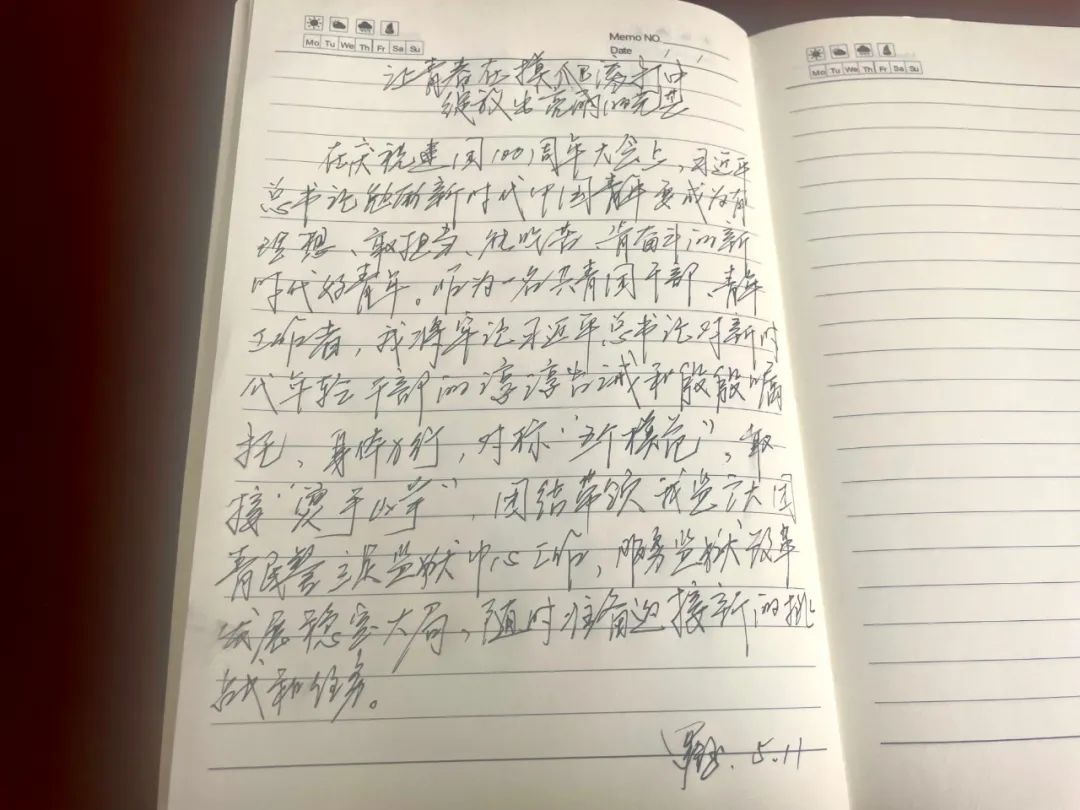 Mo Tu We Th Fr Sa Su
Memo NO.
Date
让青春在摸爬滚打中
绽放出亮丽的光芒
在庆祝建团100周年大会上，习近平
总书记勉励新时代中国青年要成为有
理想、敢担当、能吃苦、肯奋斗的新
时代好青年。作为一名共青团干部、青年
工作者，我将牢记习近平总书记对新时
代年轻干部的谆谆告诫和殷殷嘱
托，身体力行，对标“五个模范”，敢
接“烫手山芋”，团结带领我监广大团
青民警立足监狱中心工作，服务监狱改革
发展稳定大局，随时准备迎接新的挑
战和任务。
5.11
Mo Tu We Th Fr Sa Su